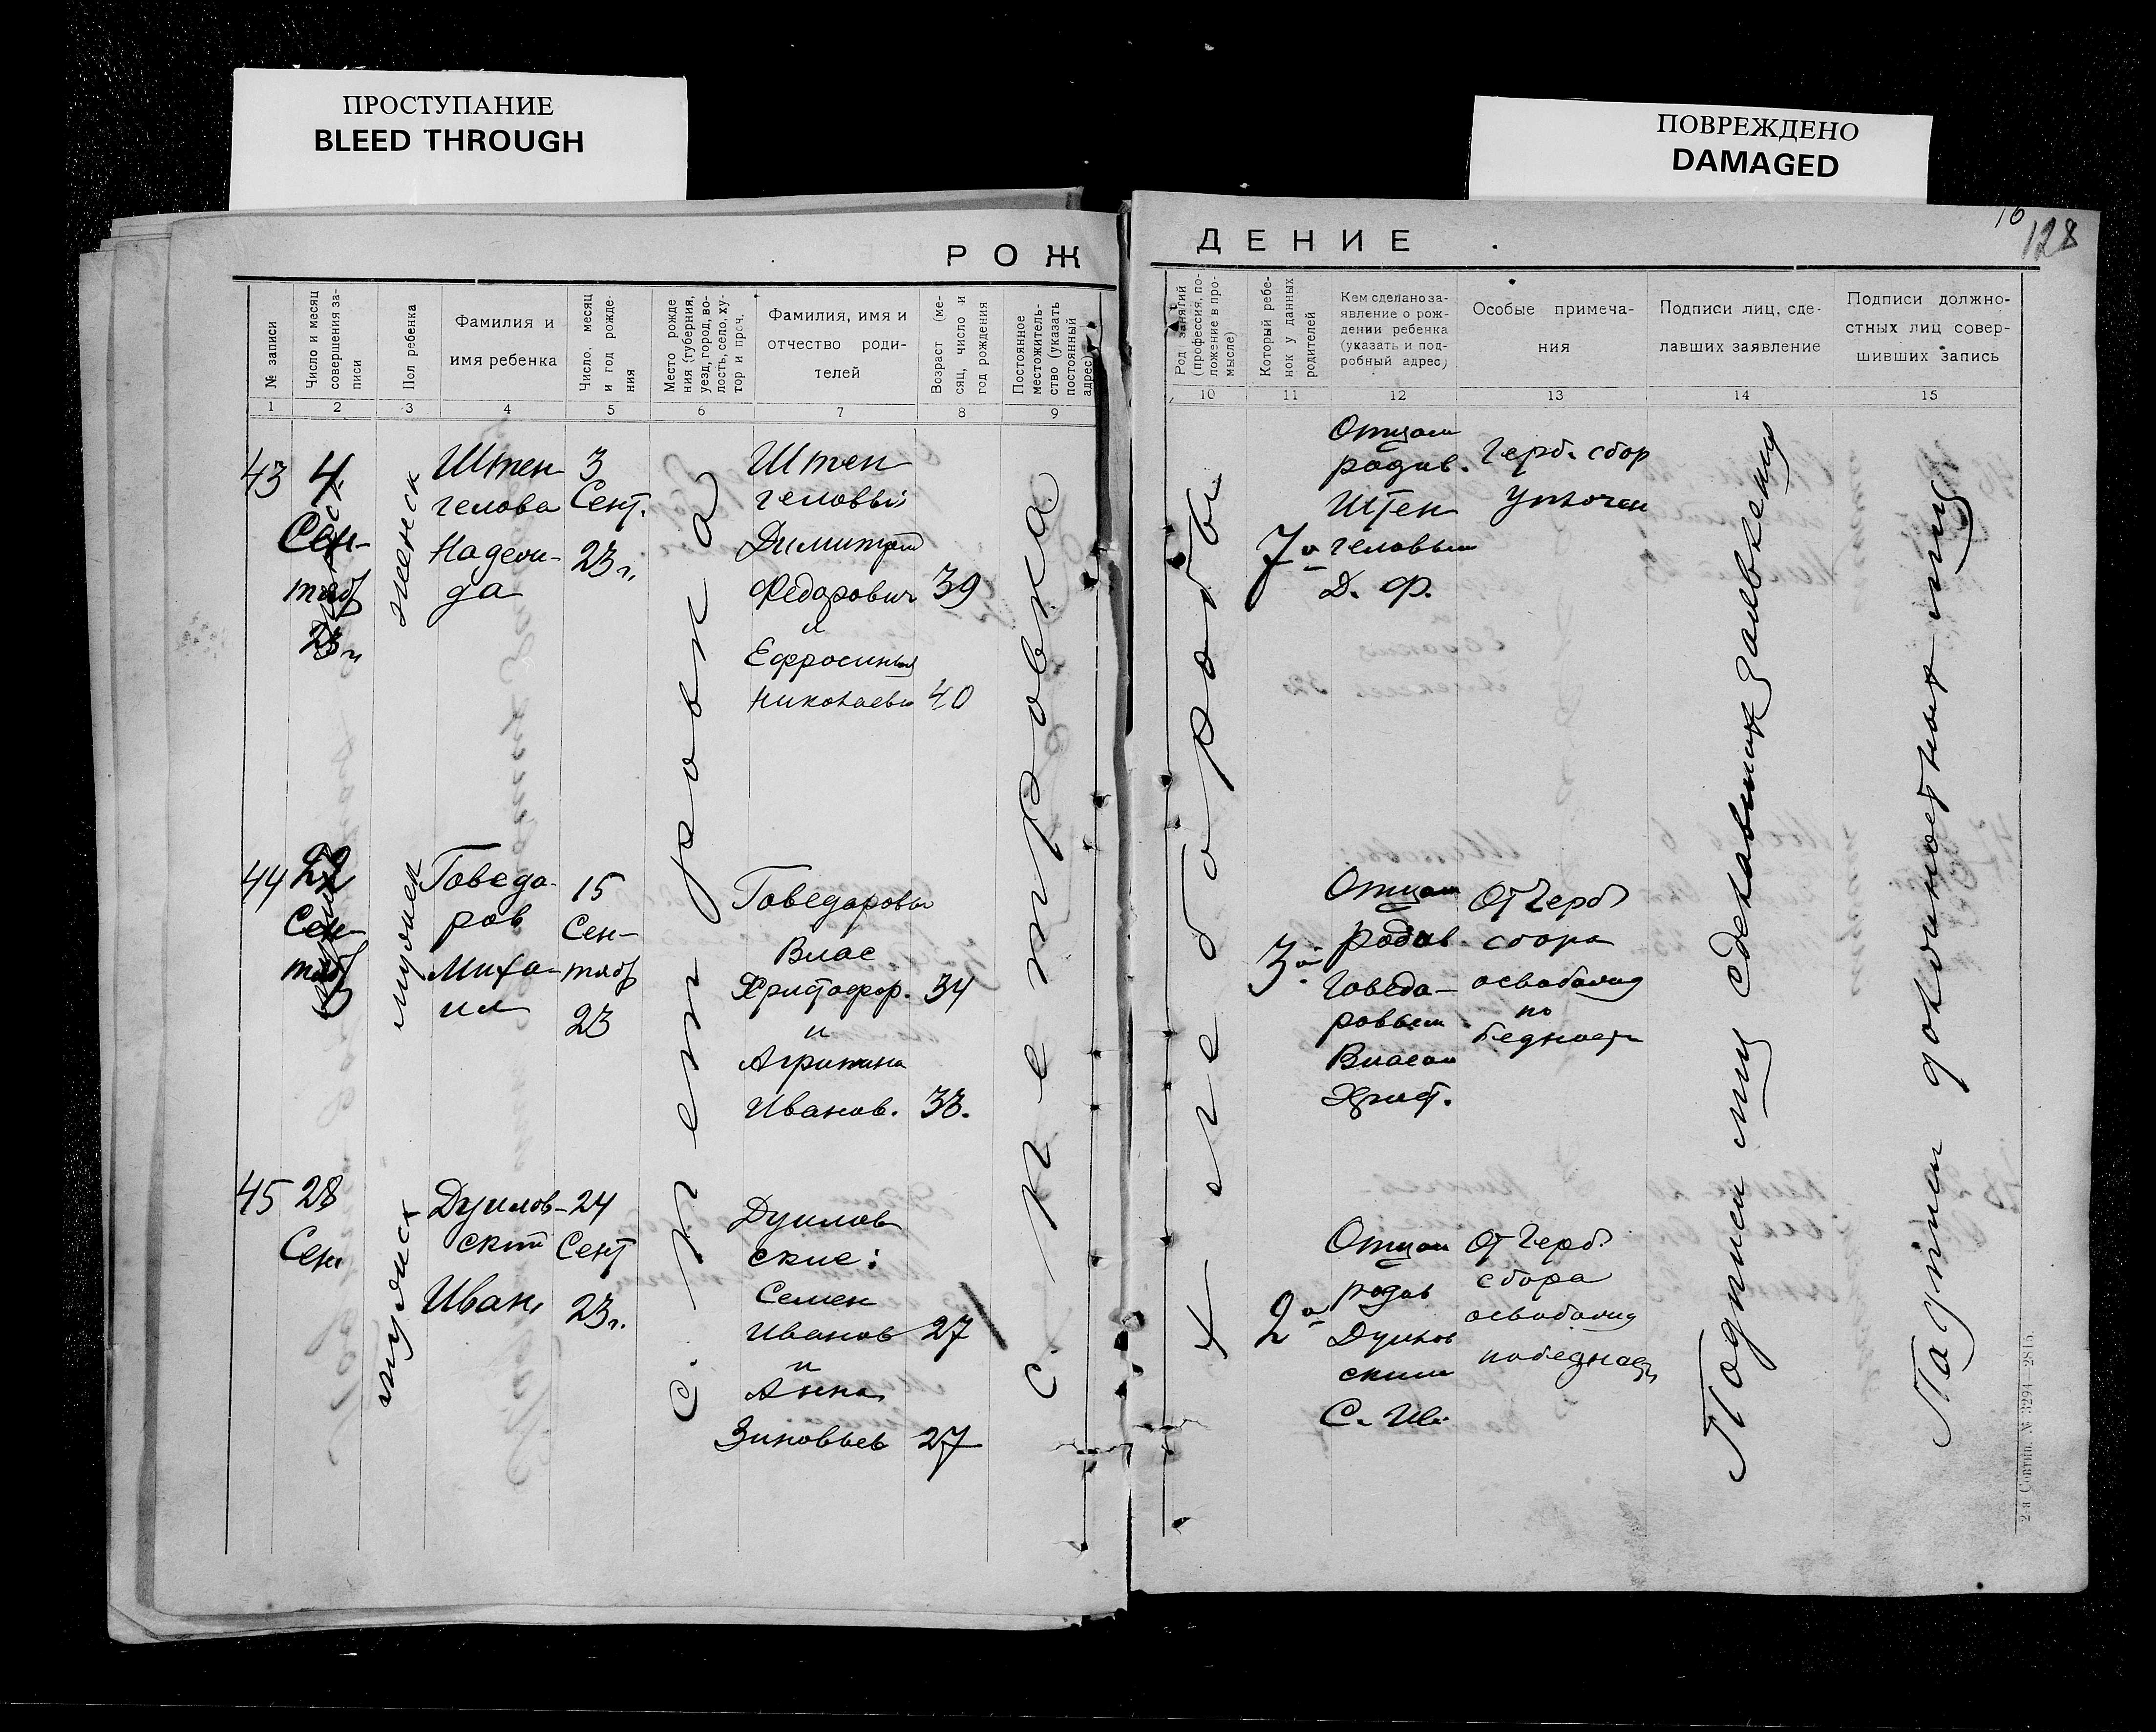 ПРОСТУПАНИЕ
BLEED THROUGH
ПОВРЕЖДЕНО
DAMAGED
16
128
РОЖДЕНИЕ
№ записи
Число и месяц совершения записи
Пол ребенка
Фамилия и
имя ребенка
Число, месяц и год рождения
Место рожде
ния (губерния,
уезд, город, во-
лость, село, ху-
тор и проч.
Фамилия, имя и
отчество роди-
телей
Возраст (ме-
сяц, число и
год рождения
Постоянное
местожитель-
ство (указать
постоянный
адрес)
Род занятий
(профессия, по-
ложение в про-
мысле)
Который ребе-
нок у данных
родителей
Кем сделано за-
явление о рож-
дении ребенка
(указать и под-
робный адрес)
Особые примеча-
ния
Подписи лиц, сде-
лавших заявление
Подписи должно-
стных лиц совер-
шивших запись
1 2 3 4 5 6 7 8 9 10 11 12 13 14 15
43
4
Сен-
тяб
23 г.
женск
Штен
гелова
Надеж-
да
3
Сент.
23 г.
Штен
геловы:
Димитрий
Федорович 39
и
Ефросиния
Николаевн 40
7й
Отцом
родив.
Штен
геловым
Д. Ф.
Герб. сбор
уплочен
44
22
Сен-
тяб
мужск
Говеда-
ров
Миха-
ил
15
Сен-
тяб
23
Говедаровы
Влас
Христофор. 34
и
Агрипина
Иванов. 33.
3й
Отцом
родив.
Говеда-
ровым
Власом
Христ.
От Герб
сбора
освобожд
по
бедности
45
28
Сен.
мужск
Дуилов-
ский
Иван
24
Сент
23 г.
Дуилов
ские:
Семен
Иванов 27
и
Анна
Зиновьев 27
2й
Отцом
родив
Дуилов
ским
С. Ив.
От Герб.
сбора
освобожд
по бедности
с. Петровка
с. Петровка
Хлеборобы
Подписи лиц сделавших заявлению
Подписи должностных лиц
2-я Совтип. № 3294—2815.